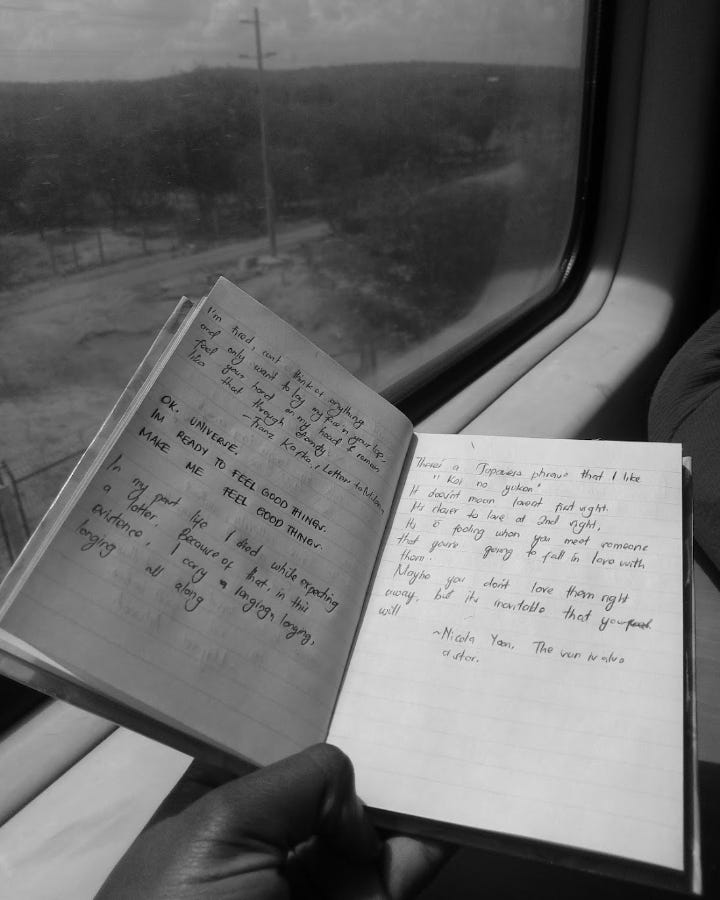 I'm tired, can't think of anything
and only want to lay my face in your lap,
feel your hand on my head & remain
like that through eternity
-Franz Kafka, Letter to Milena.
OK. UNIVERSE.
IM READY TO FEEL GOOD THINGS.
MAKE ME FEEL GOOD THINGS.
In my past life I died while expecting
a letter. Because of that, in this
existence, I carry a longing, longing,
longing all along
There's a Japanese phrase that I like
"Koi no yokan"
It doesn't mean love at first sight.
Its closer to love at 2nd sight,
Its a feeling when you meet someone
that you're going to fall in love with
them.
Maybe you don't love them right
away, but its inevitable that you
will
~Nicola Yoon. The sun is also
a star.